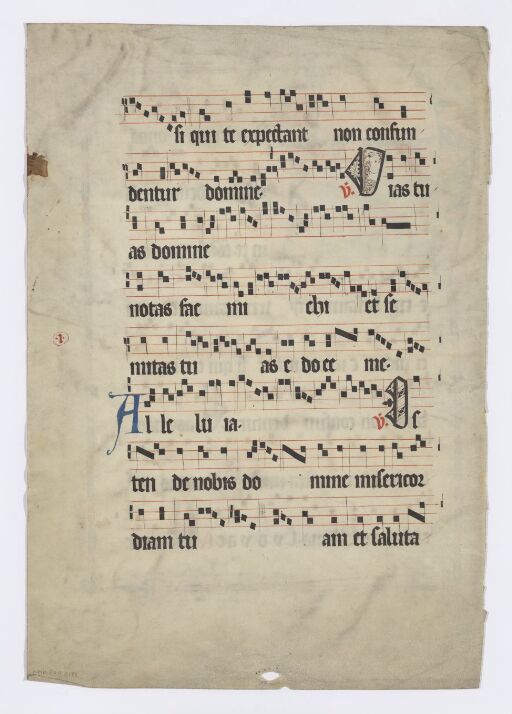 si qui te expectant non confun
dentur domine. V. Vias tu
as domine
notas fac mi chi et se
mitas tu as e do ce me.
Al le lu ia. V. Os
ten de nobis do mine misericor
diam tu am et saluta